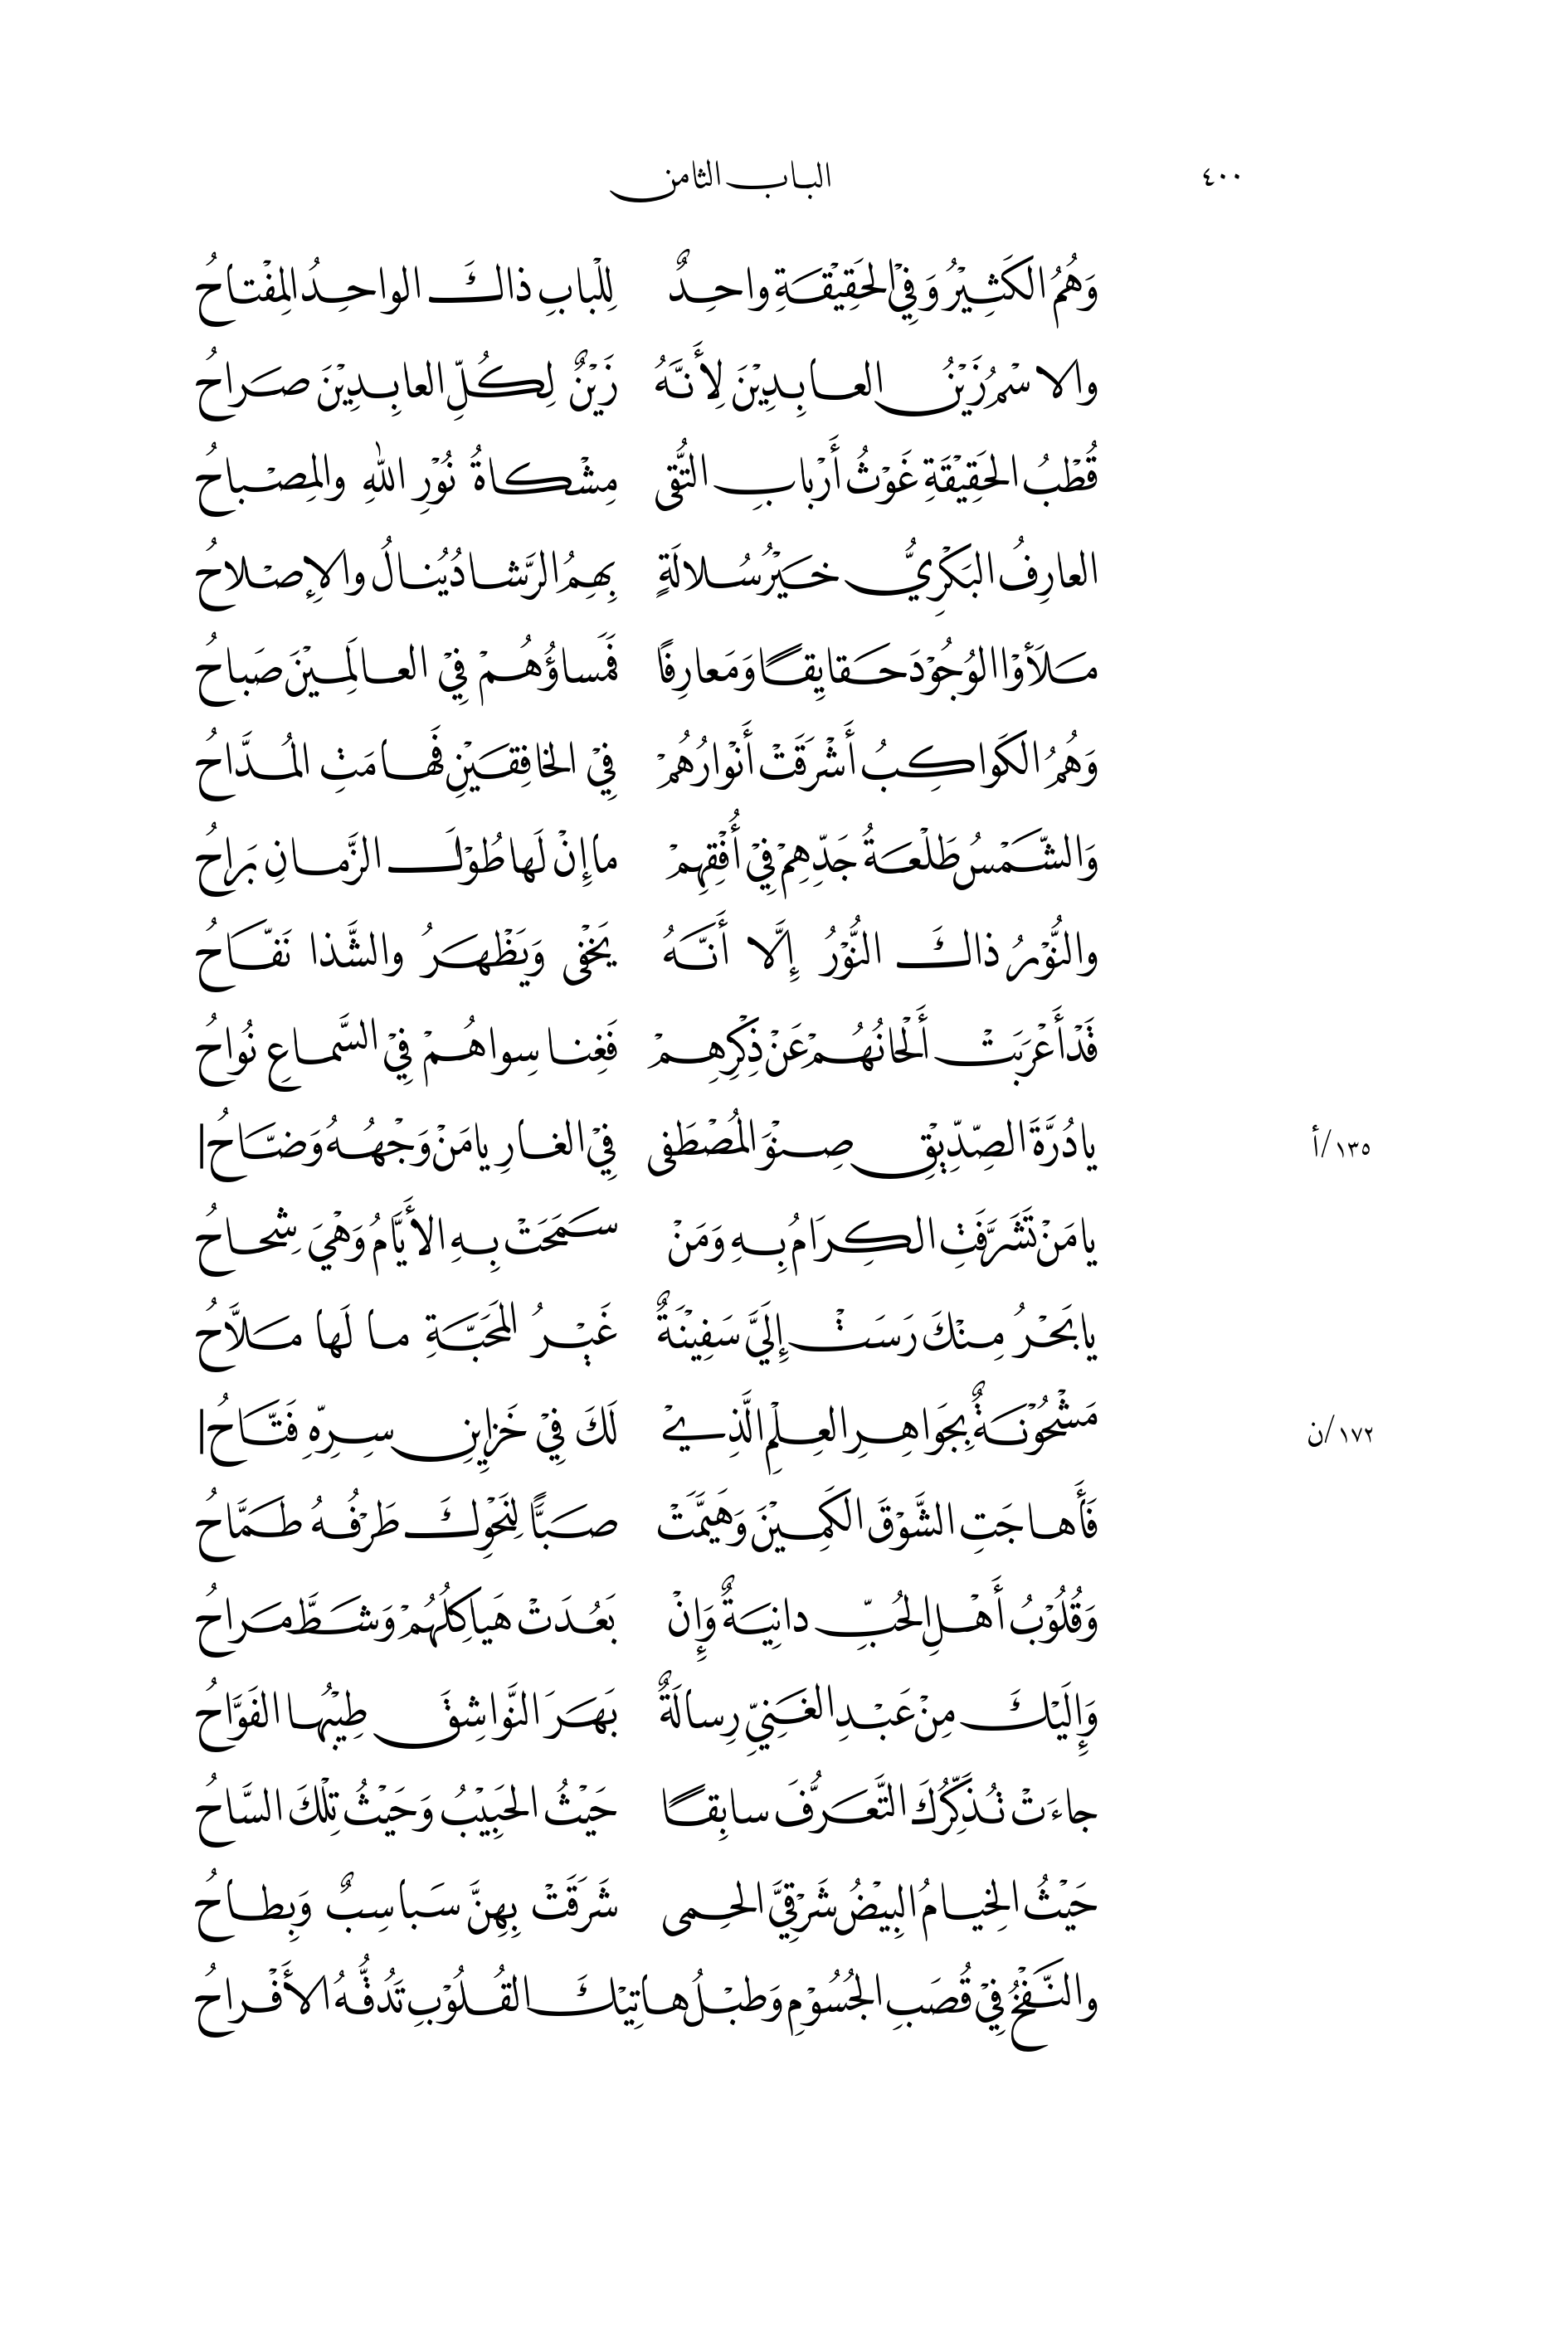 ٤٠٠ الباب الثامن
وَهُمُ الكَثِيْرُ وَفِيْ الحَقِيْقَةِ واحِدٌ لِلْبابِ ذاكَ الواحِدُ المِفْتاحُ
والاسْمُ زَيْنُ العابِدِيْنَ لِأَنَّهُ زَيْنٌ لِكُلِّ العابِدِيْنَ صَراحُ
قُطْبُ الحَقِيْقَةِ غَوْثُ أَرْبابِ التُّقى مِشْكاةُ نُوْرِ اللهِ والمِصْباحُ
العارِفُ البَكْرِيُّ خَيْرُ سُلالَةٍ بِهِمُ الرَّشادُ يُنالُ والإِصْلاحُ
مَلَأوْا الوُجُوْدَ حَقايِقًا وَمَعارِفًا فَمَساؤُهُمْ فِيْ العالَمِيْنَ صَباحُ
وَهُمُ الكَواكِبُ أَشْرَقَتْ أَنْوارُهُمْ فِيْ الخافِقَيْنِ فَهامَتِ المُدَّاحُ
وَالشَّمْسُ طَلْعَةُ جَدِّهِمْ فِيْ أُفْقِهِمْ ما إِنْ لَها طُوْلَ الزَّمانِ بَراحُ
والنُّوْرُ ذاكَ النُّوْرُ إِلَّا أَنَّهُ يَخْفى وَيَظْهَرُ والشَّذا نَفّاحُ
قَدْ أَعْرَبَتْ أَلْحانُهُمْ عَنْ ذِكْرِهِمْ فَغِنا سِواهُمْ فِيْ السَّماعِ نُواحُ
يا دُرَّةَ الصِّدِّيْقِ صِنْوَ المُصْطَفى فِيْ الغارِ يا مَنْ وَجْهُهُ وَضَّاحُ| ١٣٥/أ
يا مَنْ تَشَرَّفَتِ الكِرَامُ بِهِ وَمَنْ سَمَحَتْ بِهِ الأَيَّامُ وَهْيَ شِحاحُ
يا بَحْرُ مِنْكَ رَسَتْ إِلَيَّ سَفِيْنَةٌ غَيْرُ المَحَبَّةِ ما لَها مَلَّاحُ
مَشْحُوْنَةٌ بِجَواهِرِ العِلْمِ الَّذِيْ لَكَ فِيْ خَزايِنِ سِرِّهِ فَتَّاحُ| ١٧٢/ن
فَأَهاجَتِ الشَّوْقَ الكَمِيْنَ وَهَيَّمَتْ صَبًّا لِنَحْوِكَ طَرْفُهُ طَمَّاحُ
وَقُلُوْبُ أَهْلِ الحُبِّ دانِيَةٌ وَإِنْ بَعُدَتْ هَياكِلُهُمْ وَشَطَّ مَراحُ
وَإِلَيْكَ مِنْ عَبْدِ الغَنِيِّ رِسالَةٌ بَهَرَ النَّواشِقَ طِيْبُها الفَوَّاحُ
جاءَتْ تُذَكِّرُكَ التَّعَرُّفَ سابِقًا حَيْثُ الحَبِيْبُ وَحَيْثُ تِلْكَ السَّاحُ
حَيْثُ الخِيامُ البِيْضُ شَرْقِيَّ الحِمى شَرَقَتْ بِهِنَّ سَباسِبٌ وَبِطاحُ
والنَّفْخُ فِيْ قُصَبِ الجُسُوْمِ وَطبْلُ هاتِيْكَ القُلُوْبِ تَدُفُّهُ الأَفْراحُ